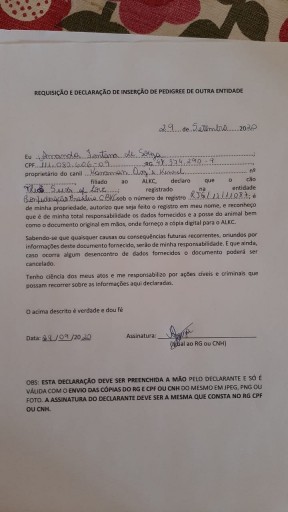 REQUISIÇÃO E DECLARAÇÃO DE INSERÇÃO DE PEDIGREE DE OUTRA ENTIDADE
29 de Setembro 2020
Eu Amanda Santana de Souza
CPF RG
proprietário do canil nº
filiado ao ALKC, declaro que o cão
registrado na entidade
sob o número de registro
de minha propriedade, autorizo que seja feito o registro em meu nome, e reconheço
que é de minha total responsabilidade os dados fornecidos e a posse do animal bem
como o documento original em mãos, onde forneço a cópia digital para o ALKC.
Sabendo-se que quaisquer causas ou consequências futuras recorrentes, oriundos por
informações deste documento fornecido, serão de minha responsabilidade. E que ainda,
caso ocorra algum desencontro de dados fornecidos o documento poderá ser
cancelado.
Tenho ciência dos meus atos e me responsabilizo por ações cíveis e criminais que
possam recorrer sobre as informações aqui declaradas.
O acima descrito é verdade e dou fé
Data: 29/09/2020 Assinatura:
(igual ao RG ou CNH)
OBS: ESTA DECLARAÇÃO DEVE SER PREENCHIDA A MÃO PELO DECLARANTE E SÓ É
VÁLIDA COM O ENVIO DAS CÓPIAS DO RG E CPF OU CNH DO MESMO EM JPEG, PNG OU
FOTO. A ASSINATURA DO DECLARANTE DEVE SER A MESMA QUE CONSTA NO RG CPF
OU CNH.